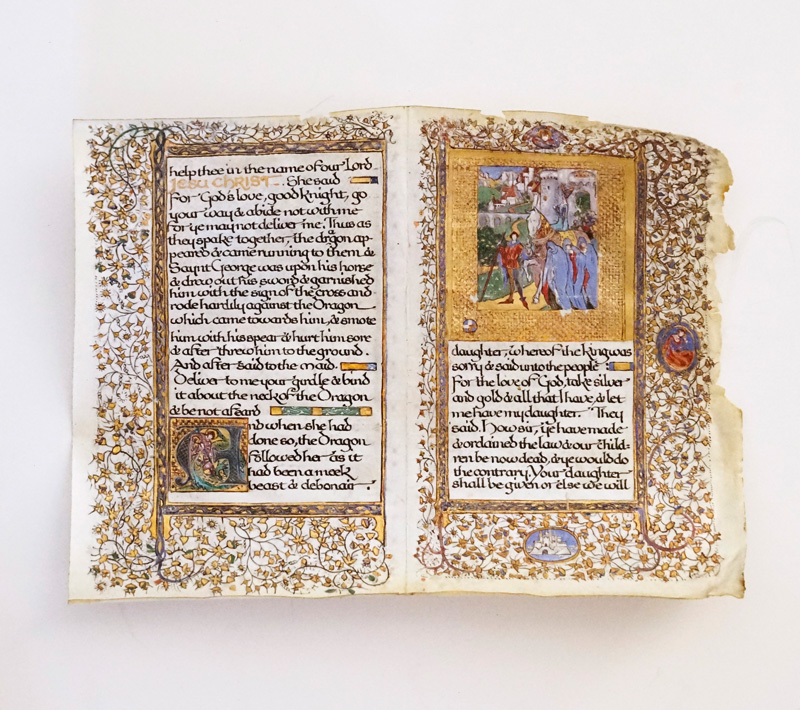 help thee in the name of our Lord
JESU CHRIST. She said
For God's love, good knight, go
your way & abide not with me
for ye may not deliver me. Thus as
they spake together, the dragon ap-
peared & came running to them &
Saynt George was upon his horse
& drew out his sword & garnished
him with the sign of the cross and
rode hardily against the Dragon
which came towards him, & smote
him with his spear & hurt him sore
& after threw him to the ground.
And after said to the maid.
Deliver to me your girdle & bind
it about the neck of the Dragon
& be not afeard
And when she had
done so, the Dragon
followed her as it
had been a meek
beast & debonair.
daughter, whereof the king was
sorry & said unto the people
For the love of God, take silver
and gold & all that I have, & let
me have my daughter. They
said, How sir, ye have made
& ordained the law & our child-
ren be now dead, & ye would do
the contrary. Your daughter
shall be given or else we will